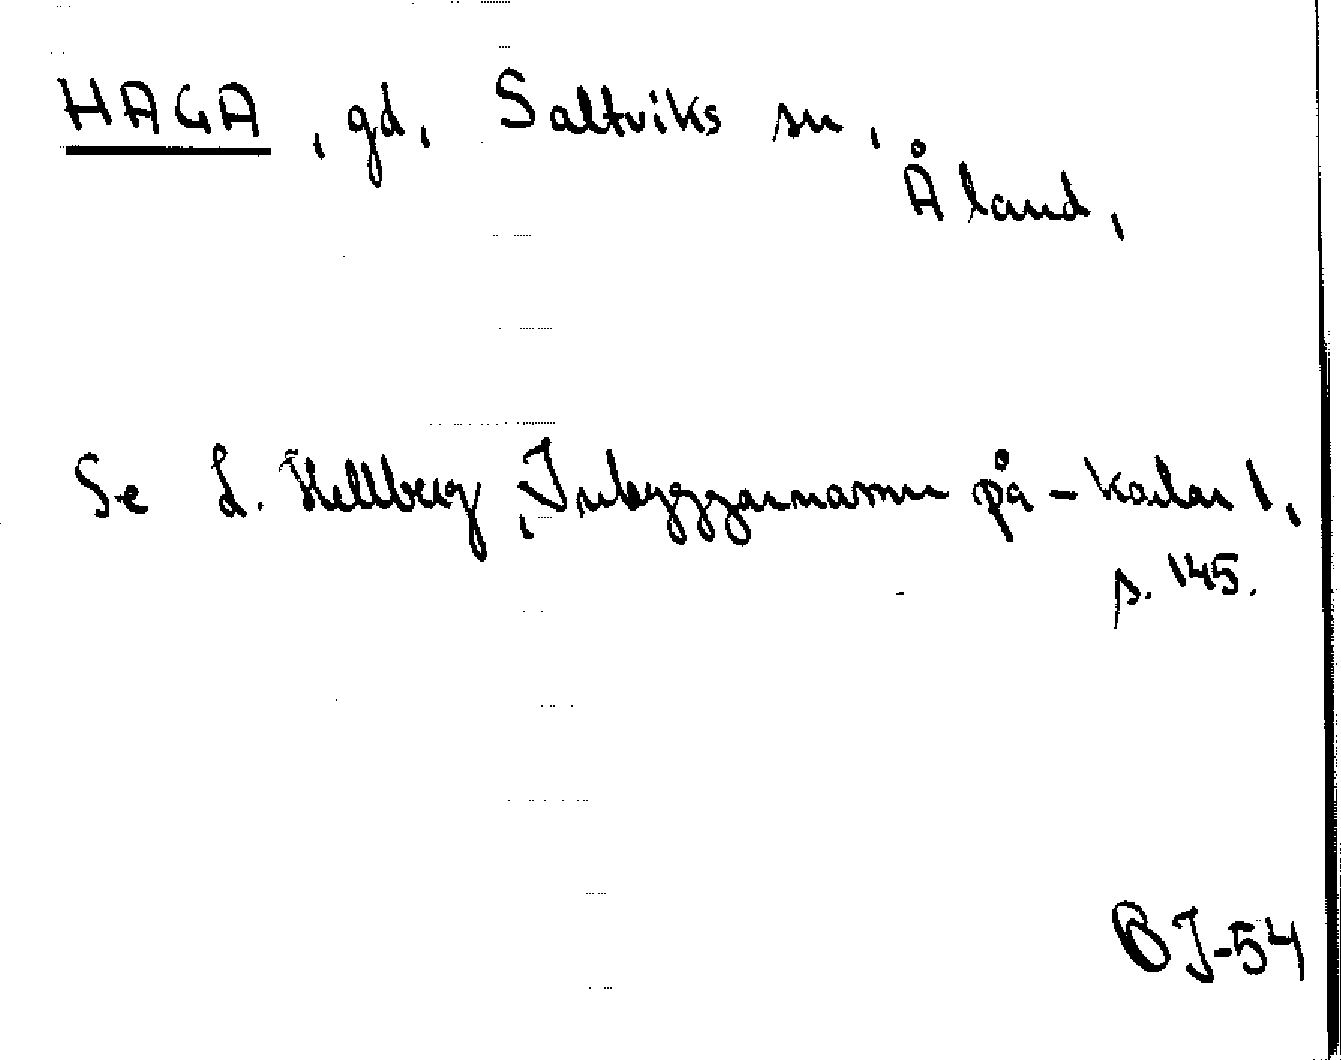 HAGA, gd, Saltviks sn,
Åland,
Se L. Hellberg, Inbyggarnamn på -karlar 1,
s. 145.
BJ-54